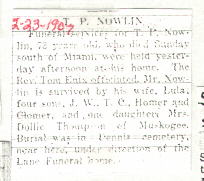 2-23-1907
T. P. NOWLIN
Funeral services for T. P. Now-
lin, 78 year old, who died Sunday
south of Miami, were held yester-
day afternoon at his home. The
Rev. Tom Enix officiated. Mr. Now-
lin is survived by his wife, Lula,
four sons, J. W., T. C., Homer and
Clomer, and one daughter, Mrs.
Dollie Thompson of Muskogee.
Burial was in Dennis cemetery,
near here, under direction of the
Lane Funeral home.